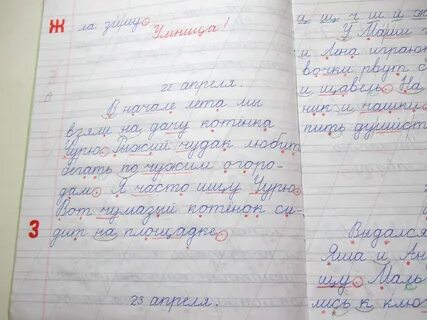 Ж
ла зиму.
Умница!
22 апреля.
В начале лета мы
взяли на дачу котёнка
Чурю. Рыжий чудак любит
бегать по чужим огоро-
дам. Я часто ищу Чурю.
Вот чумазый котёнок си-
З
дит на площадке.
23 апреля.
и, ш, г ш и ж
У Маши
и Лена играют
вочки рвут с
и щавель. На
ник и чашки
пить душист
Выдался
Яша и Ан
щу. Маль
лись к клю